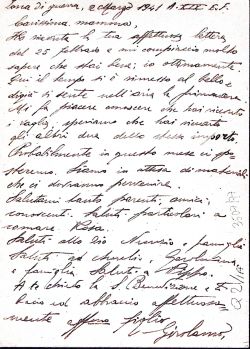 Zona di guerra, 2 Marzo 1941 A. XIX E.F.
Carissima mamma,
Ho ricevuto la tua affettuosa lettera
del 25 febbraio e mi compiaccio molto
sapere che stai bene; io ottimamente.
Qui il tempo si è rimesso al bello e
digià si sente nell'aria la primavera
Mi fa piacere conoscere che hai ricevuto
i vaglia, speriamo che hai ricevuto
gli altri due dello stesso importo.
Probabilmente in questo mese ci
Siamo in attesa di materiali
che ci dovranno pervenire.
Salutami tanto parenti, amici,
conoscenti. Saluti particolari a
Rosa.
Saluti allo zio Nunzio e famiglia
Saluti Girolama
e famiglia Saluti a Peppe.
A te chiedo la S. Benedizione e ti
bacio ed abbraccio affettuosa
mente figlio
Girolamo